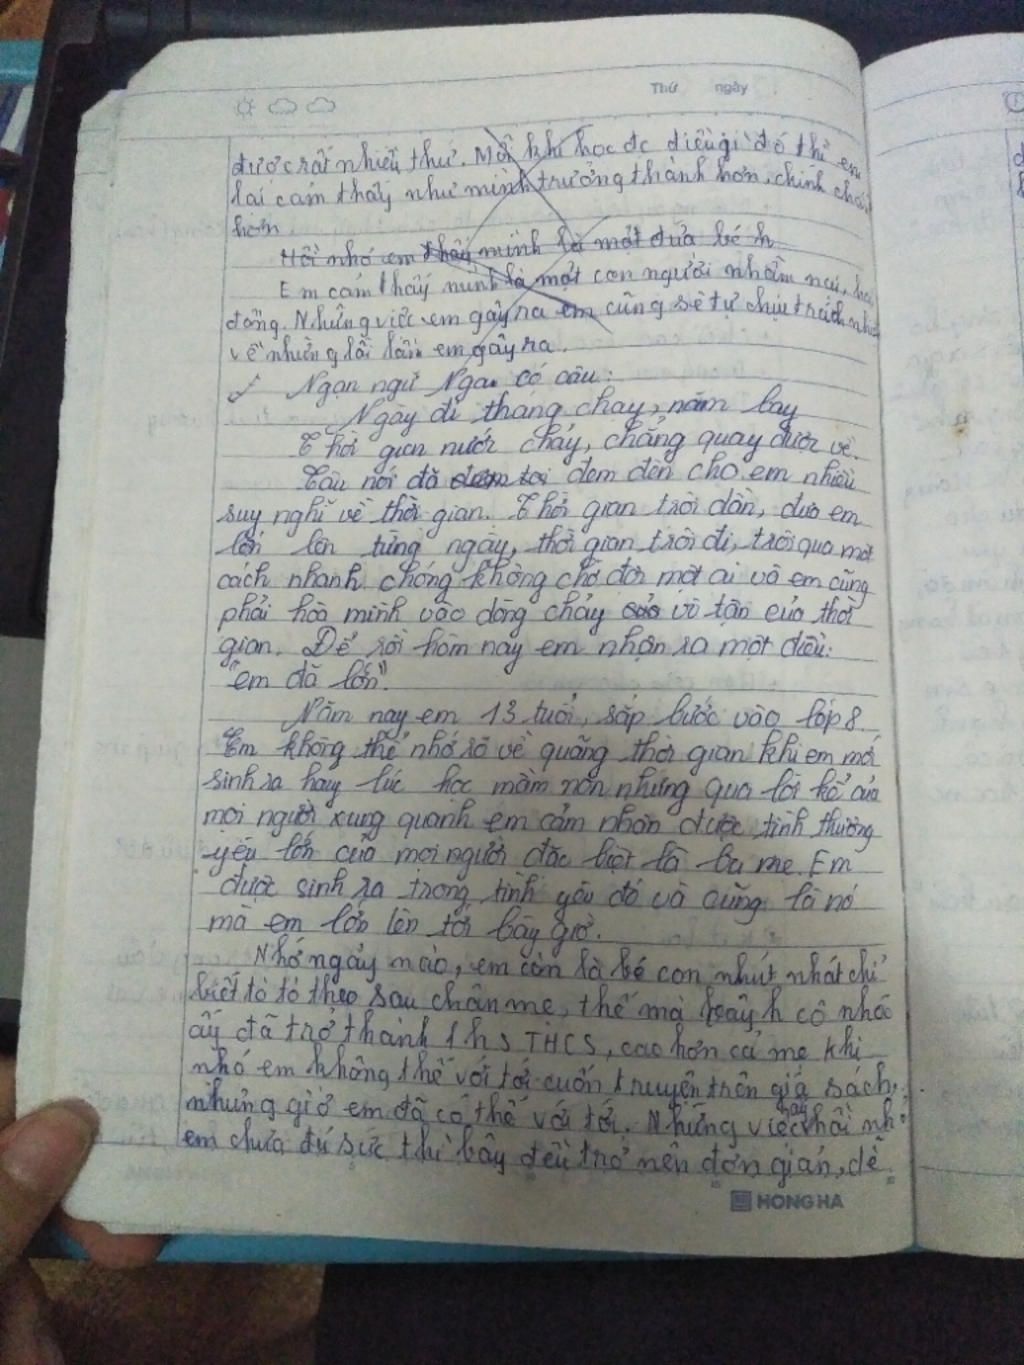 Thứ ngày
được rất nhiều thứ. Mỗi khi học đc điều gì đó thì em
lại cảm thấy như mình trưởng thành hơn, chính chắn
hơn
Hồi nhỏ em thấy mình là một đứa bé h
Em cảm thấy mình là một con người nhầm
động. Những việc em gây ra em cũng sẽ tự chịu trách nhiệm
về những lỗi lầm em gây ra.
Ngạn ngữ Nga có câu:
Ngày đi tháng chạy, năm bay
Thời gian nước chảy, chẳng quay được về.
Câu nói đã đem đến cho em nhiều
suy nghĩ về thời gian. Thời gian trôi dần, đưa em
lớn lên từng ngày, thời gian trôi đi, trôi qua một
cách nhanh chóng không chờ đợi một ai và em cũng
phải hòa mình vào dòng chảy vô tận của thời
gian. Để rồi hôm nay em nhận ra một điều:
"em đã lớn".
Năm nay em 13 tuổi, sắp bước vào lớp 8
Em không thể nhớ rõ về quãng thời gian khi em mới
sinh ra hay lúc học mầm non nhưng qua lời kể của
mọi người xung quanh em cảm nhận được tình thương
yêu lớn của mọi người đặc biệt là ba mẹ. Em
được sinh ra trong tình yêu đó và cũng là nó
mà em lớn lên tới bây giờ.
Nhớ ngày nào, em còn là bé con nhút nhát chỉ
biết tò tò theo sau chân mẹ, thế mà bây h cô nhóc
ấy đã trở thành 1 hs THCS, cao hơn cả mẹ khi
nhỏ em không thể với tới cuốn truyện trên giá sách,
nhưng giờ em đã có thể với tới. Những việc hay hồi nhỏ
em chưa đủ sức thì bây đều trở nên đơn giản, dễ
HONG HA